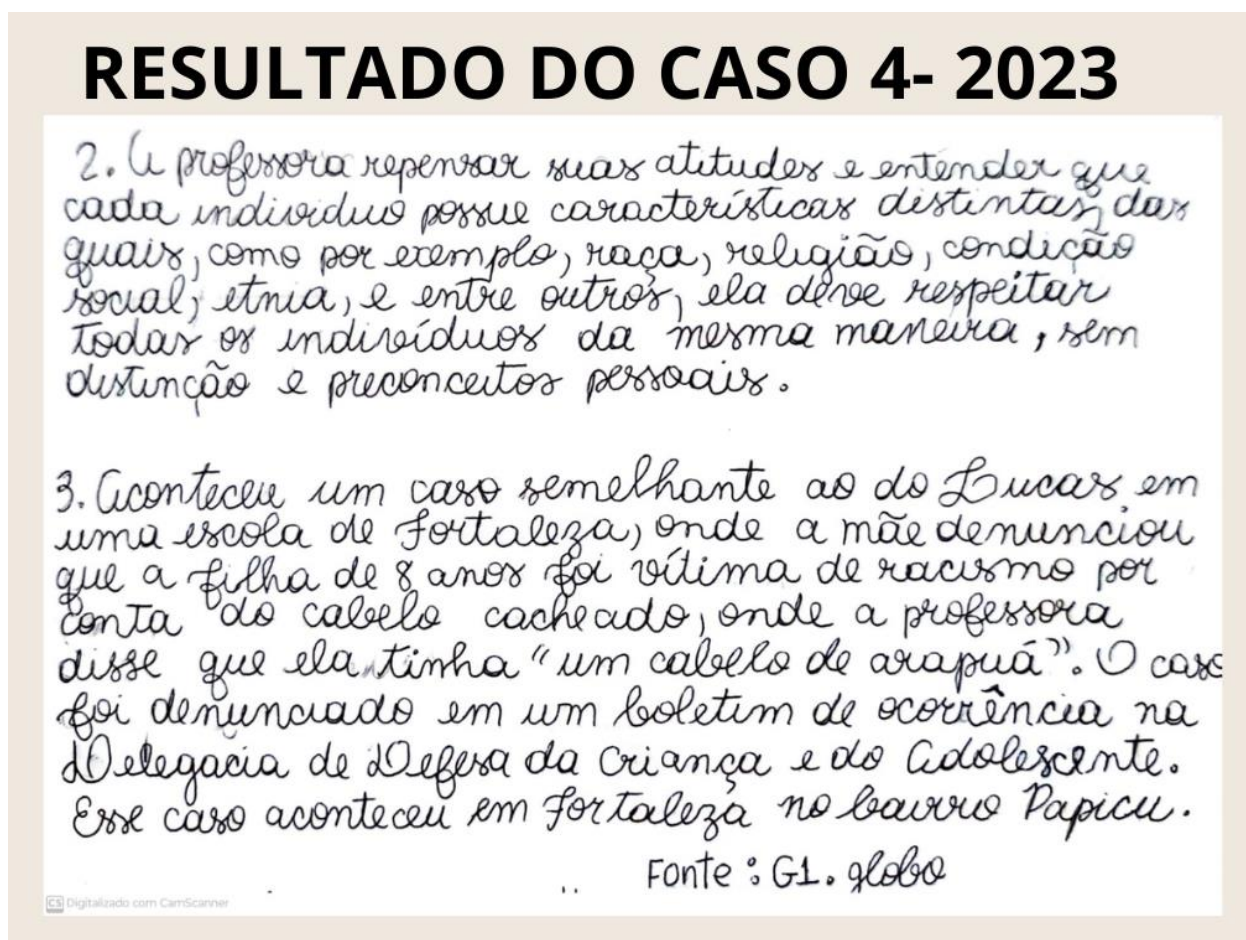 RESULTADO DO CASO 4- 2023
2. A professora repensar suas atitudes e entender que
cada individuo possue características distintas, das
quais, como por exemplo, raça, religião, condição
social, etnia, e entre outros, ela deve respeitar
todas os indivíduos da mesma maneira, sem
distinção e preconceitos pessoais.
3. Aconteceu um caso semelhante ao do Lucas em
uma escola de Fortaleza, onde a mãe denunciou
que a filha de 8 anos foi vítima de racismo por
conta do cabelo cacheado, onde a professora
disse que ela tinha “um cabelo de arapuá”. O caso
foi denunciado em um boletim de ocorrência na
Delegacia de Defesa da Criança e do Adolescente.
Esse caso aconteceu em Fortaleza no bairro Papicu.
Fonte : G1. globo
CS Digitalizado com CamScanner